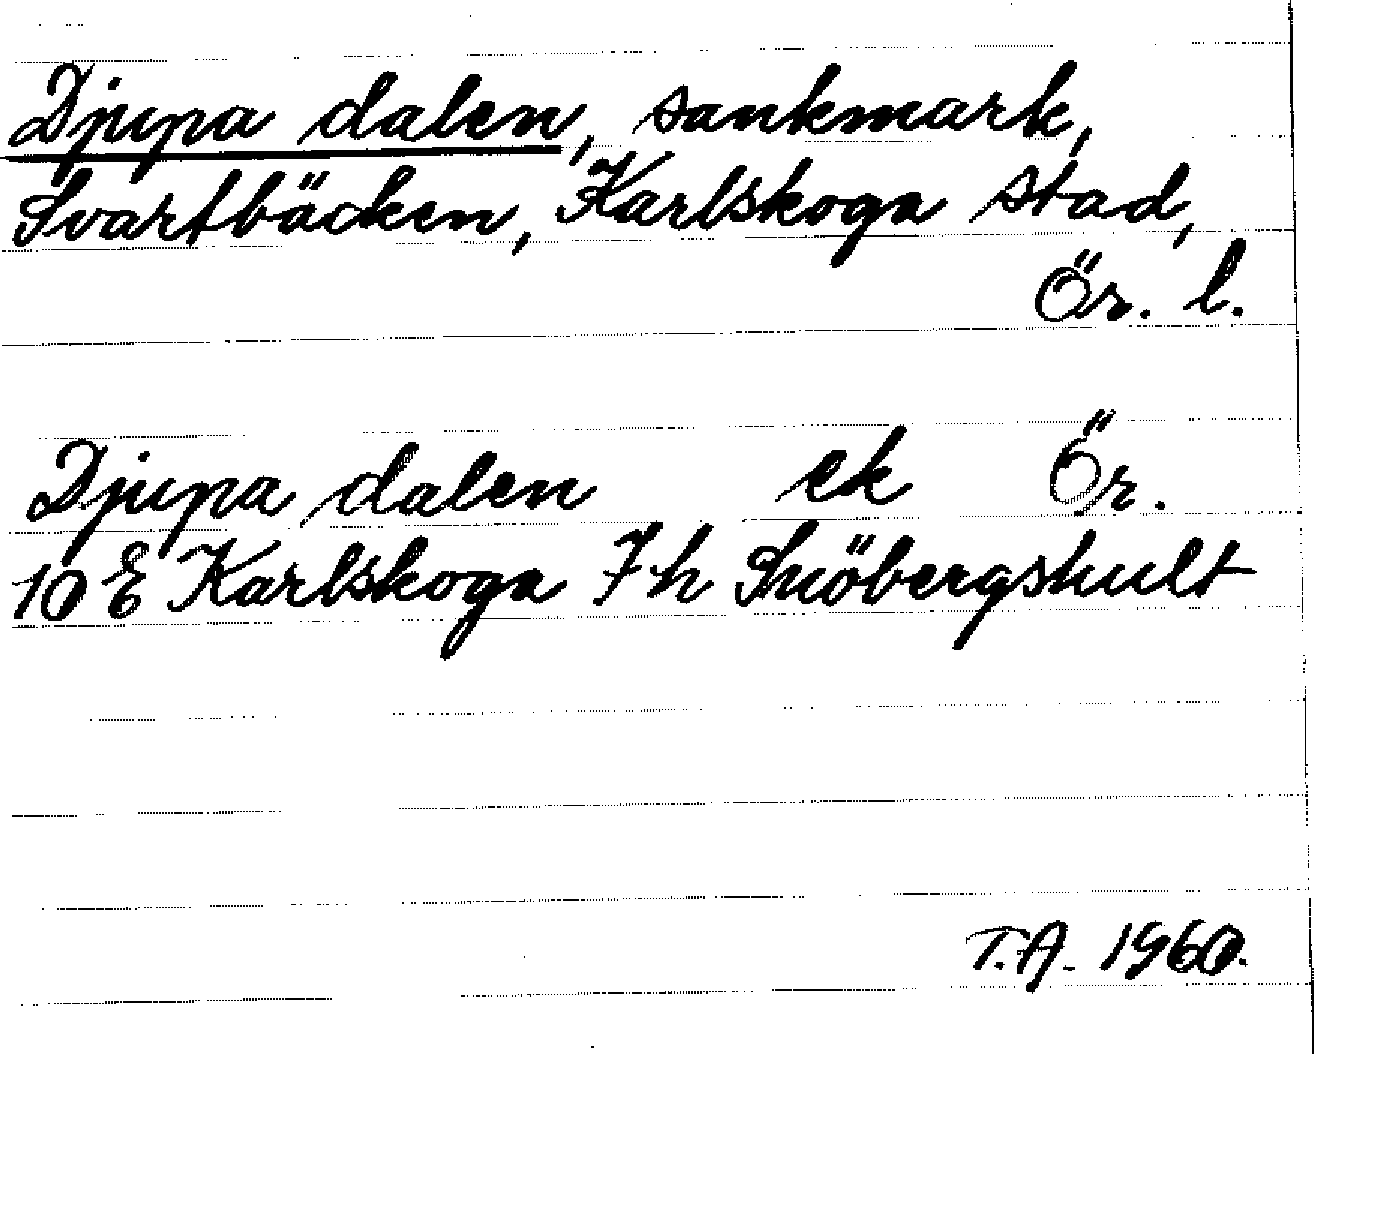 Djupa dalen, sankmark,
Svartbäcken, Karlskoga stad,
Ör. l.
Djupa dalen ek Ör.
10 E Karlskoga 7h Snöbergshult
T.A. 1960.